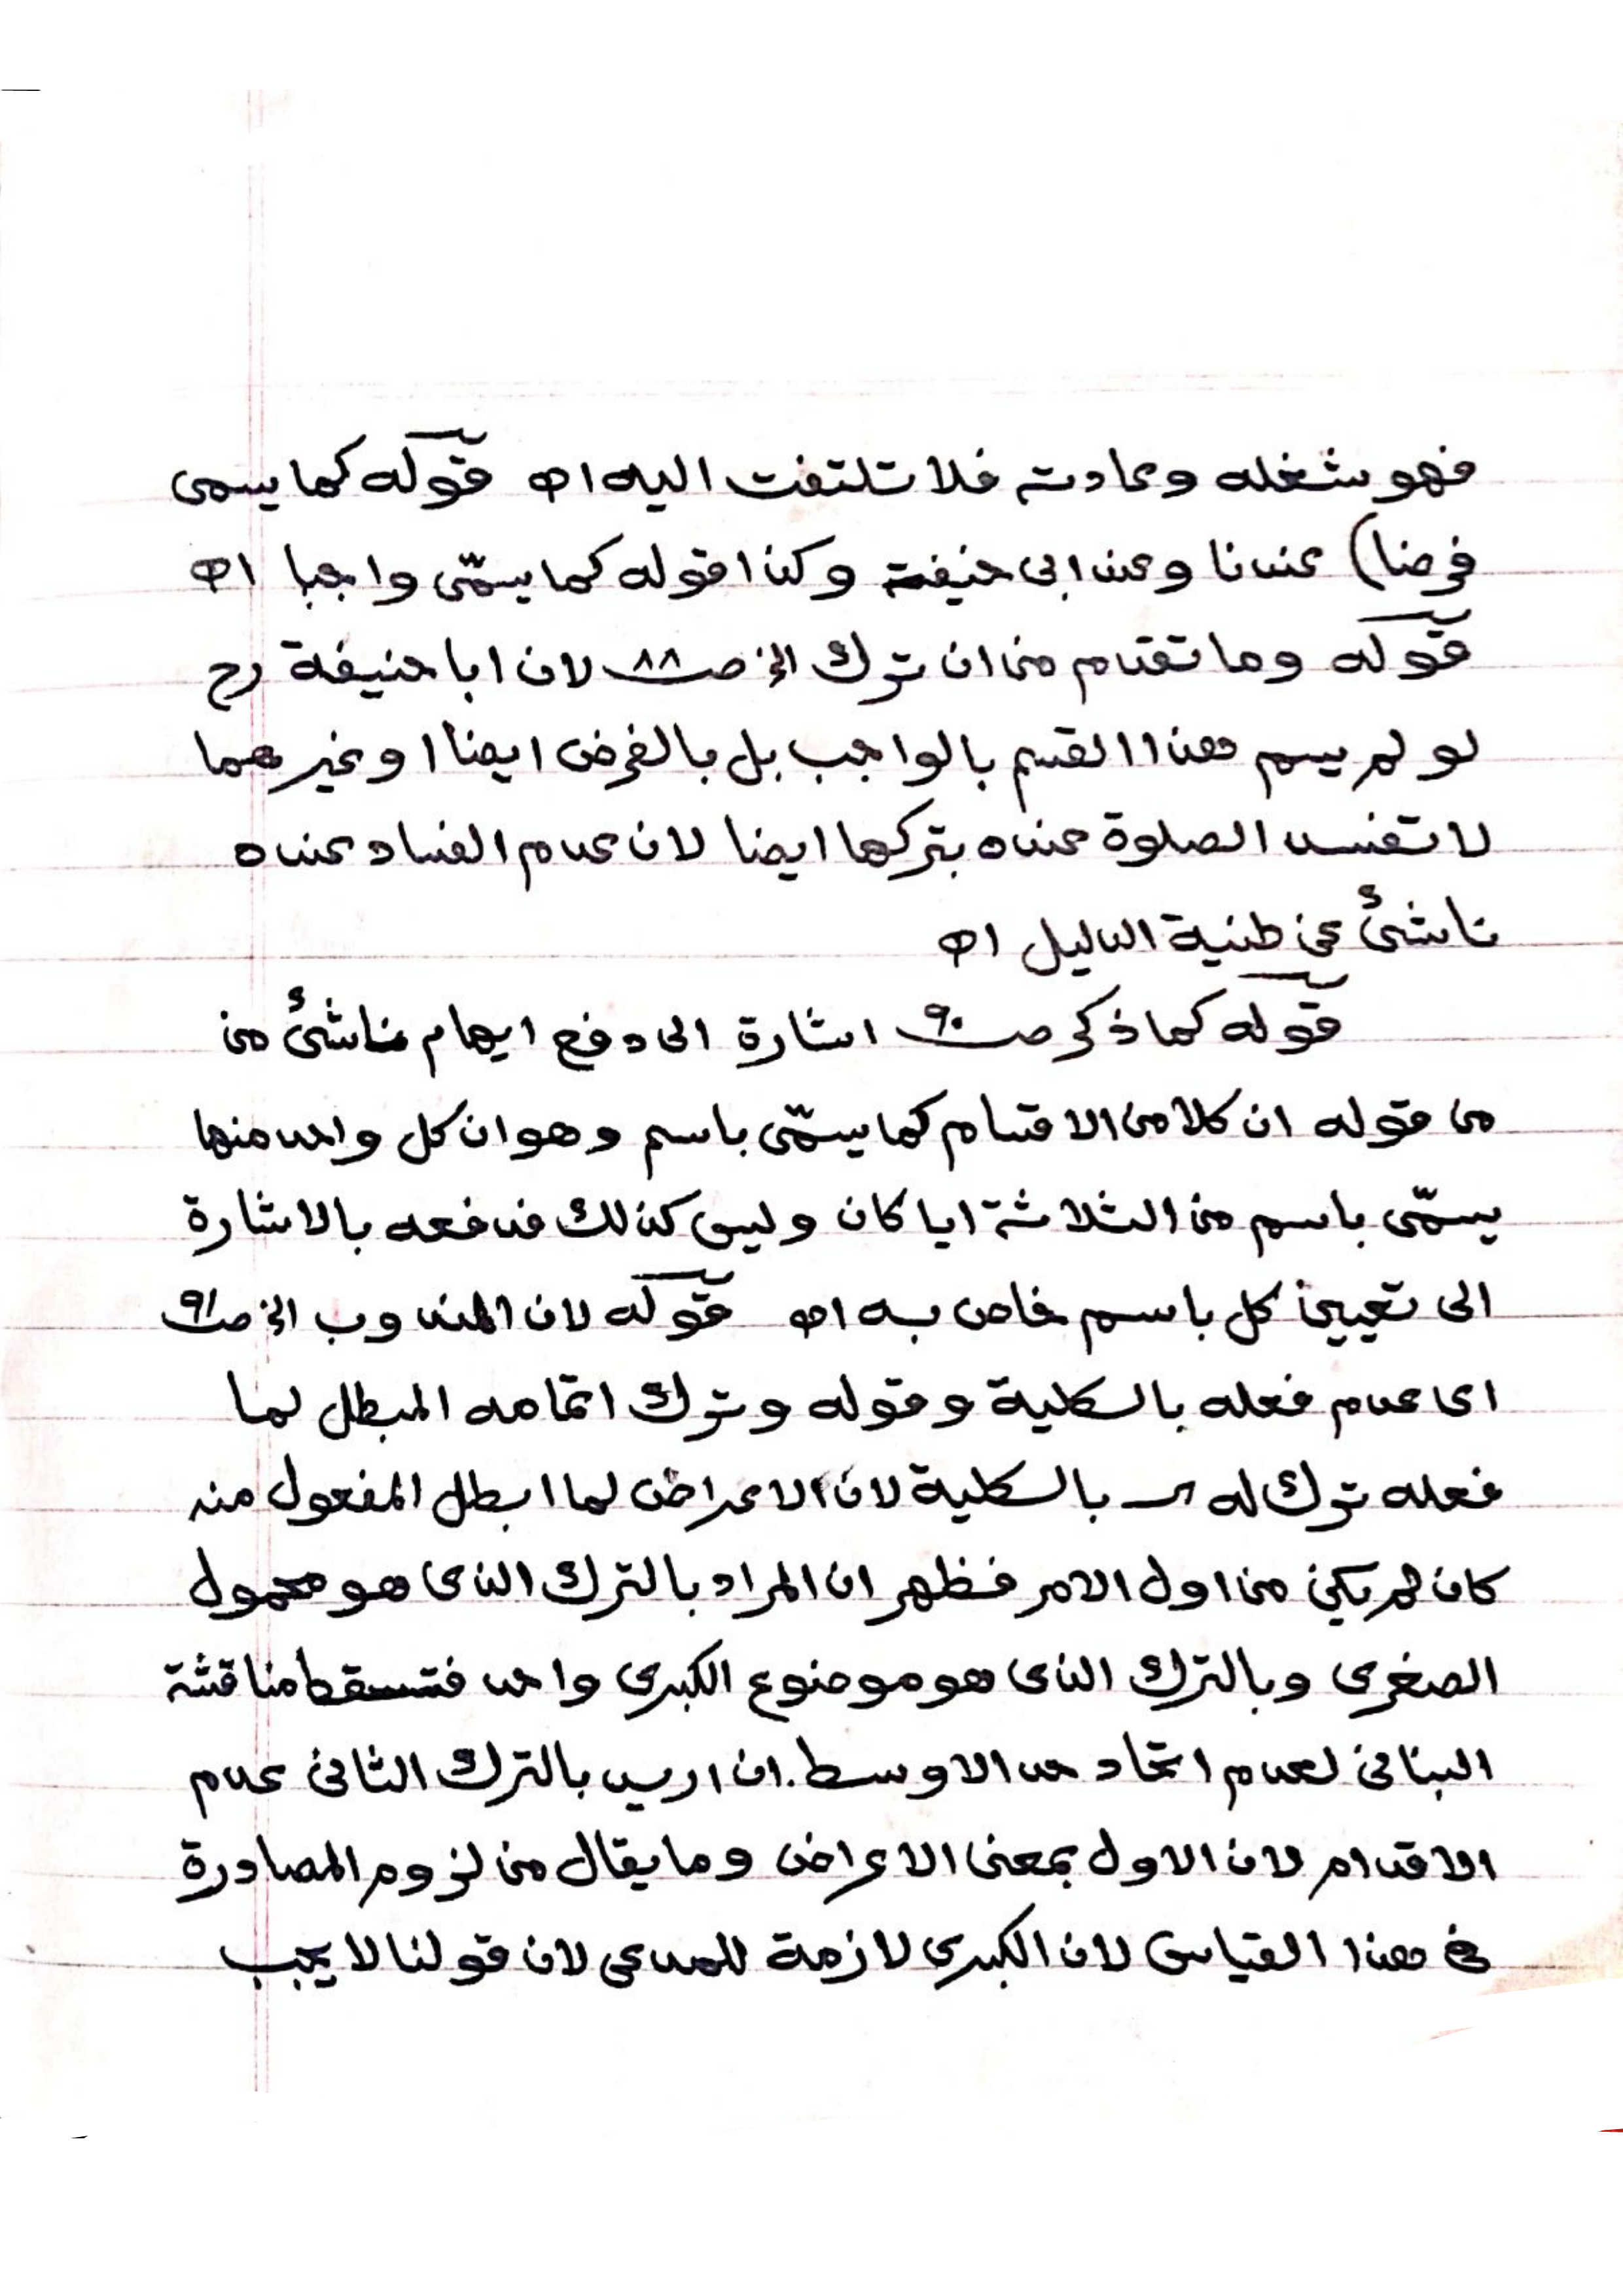 فهو شغله وعادته فلا تلتفت اليه اه قوله كما يسمى
فرضا) عندنا وعند ابى حنيفة وكذا قوله كما يسمّى واجبا اه
قوله وما تقدم من ان ترك الخ صـ٨٨ لان ابا حنيفة رح
لو لم يسم هذا القسم بالواجب بل بالفرض ايضا او غيرهما
لا تفسد الصلوة عنده بتركها ايضا لان عدم الفساد عنده
ناشئ عن ظنية الدليل اه
قوله كما ذكر صـ٩٠ اشارة الى دفع ايهام ناشئ من
من قوله ان كلا من الاقسام كما يسمّى باسم وهو ان كل واحد منها
يسمّى باسم من الثلاثة ايا كان وليس كذلك فدفعه بالاشارة
الى تعيين كل باسم خاص به اه قوله لان المندوب الخ صـ٩١
اى عدم فعله بالكلية وقوله وترك اتمامه المبطل لما
فعله ترك له بالكلية لان الاعراض لما ابطل المفعول منه
كان لم يكن من اول الامر فظهر ان المراد بالترك الذى هو محمول
الصغرى وبالترك الذى هو موضوع الكبرى واحد فتسقط مناقشة
البنانى لعدم اتحاد حد الاوسط. ان اريد بالترك الثانى عدم
الاقدام لان الاول بمعنى الاعراض وما يقال من لزوم المصادرة
فى هذا القياس لان الكبرى لازمة للمدعى لان قولنا لا يجب